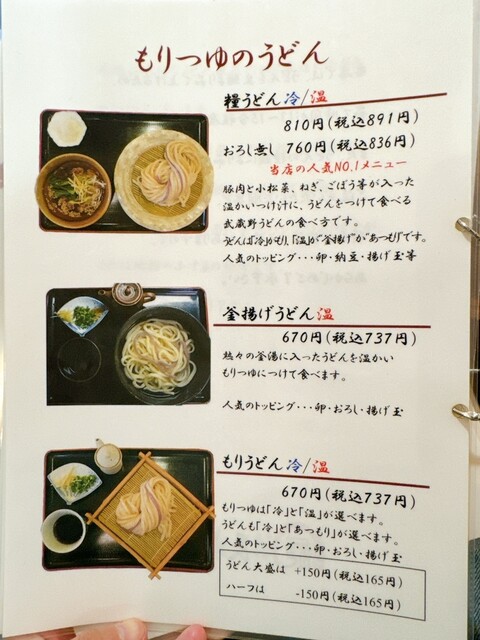 もりつゆのうどん
糧うどん 冷/温
810円(税込891円)
おろし無し 760円(税込836円)
当店の人気NO.1メニュー
豚肉と小松菜、ねぎ、ごぼう等が入った
温かいつけ汁に、うどんをつけて食べる
武蔵野うどんの食べ方です。
うどんは「冷」がもり、「温」が釜揚げ"か"あつもり"です。
人気のトッピング・・・卵・納豆・揚げ玉等
釜揚げうどん 温
670円(税込737円)
熱々の釜湯に入ったうどんを温かい
もりつゆにつけて食べます。
人気のトッピング・・・卵・おろし・揚げ玉
もりうどん 冷/温
670円(税込737円)
もりつゆは「冷」と「温」が選べます。
うどんも「冷」と「あつもり」が選べます。
人気のトッピング・・・卵・おろし・揚げ玉
うどん大盛は +150円(税込165円)
ハーフは -150円(税込165円)